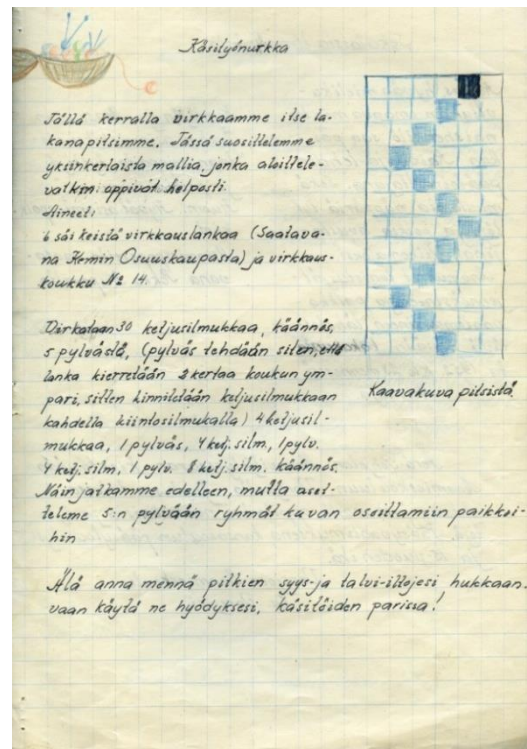 Käsityönurkka
Tällä kerralla virkkaamme itse la-
kanapitsimme. Tässä suosittelemme
yksinkertaista mallia, jonka aloittele-
vatkin oppivat helposti.
Aineet:
6 säikeistä virkkauslankaa (Saatava-
na Kemin Osuuskaupasta) ja virkkaus-
koukku № 14.
Virkataan 30 ketjusilmukkaa, käännös,
5 pylvästä, (pylväs tehdään siten, että
lanka kierretään 2 kertaa koukun ym-
päri, sitten kinnitetään ketjusilmukkaan
kahdella kiintosilmukalla) 4 ketjusil-
mukkaa, 1 pylväs, 4 ketj. silm, 1 pylv.
4 ketj. silm, 1 pylv. 8 ketj. silm. käännös.
Näin jatkamme edelleen, mutta aset-
teleme 5:n pylvään ryhmät kuvan osoittamiin paikkoi-
hin
Kaavakuva pitsistä.
Älä anna mennä pitkien syys- ja talvi-iltojesi hukkaan.
vaan käytä ne hyödyksesi, käsitöiden parissa!